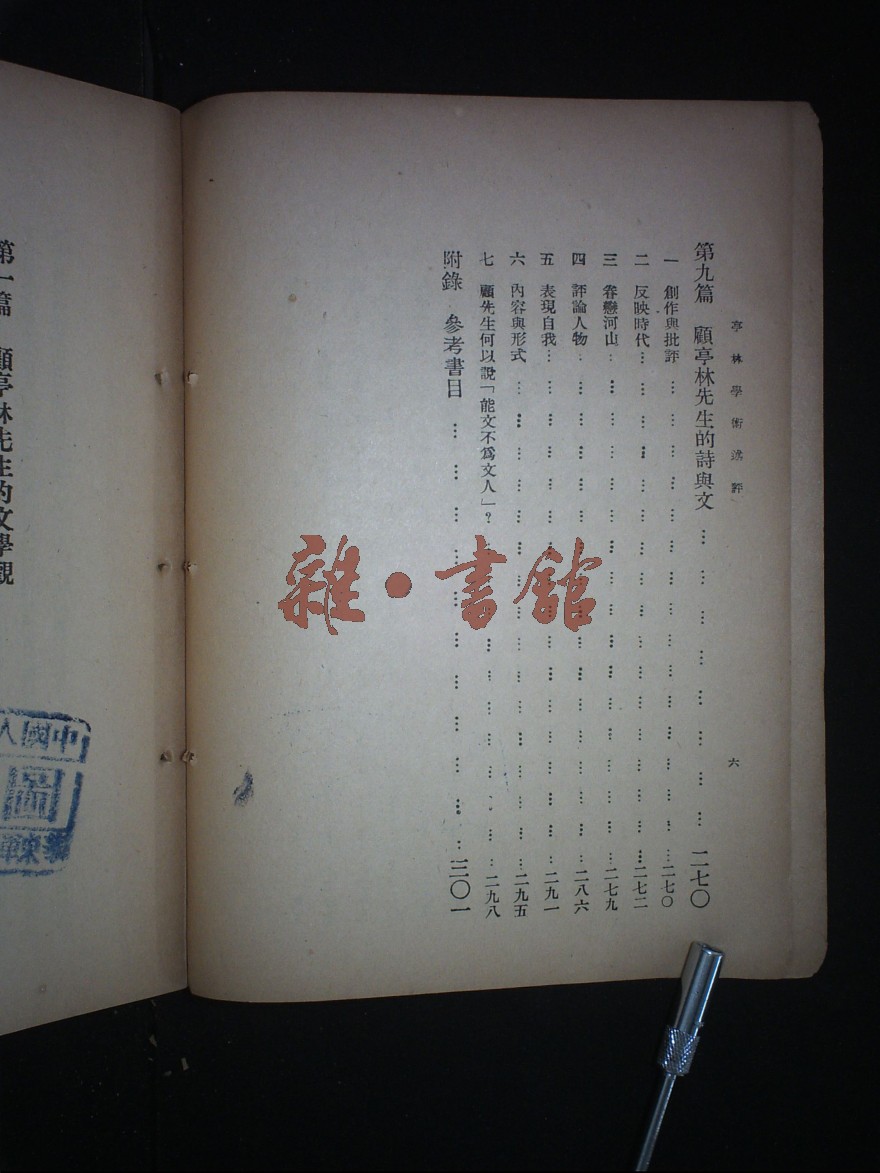 亭林學術述評
第九篇　顧亭林先生的詩與文………………………二七〇
一　創作與批評………………………二七〇
二　反映時代………………………二七二
三　眷戀河山………………………二七九
四　評論人物………………………二八六
五　表現自我………………………二九一
六　內容與形式………………………二九五
七　顧先生何以說「能文不爲文人」？………………………二九八
附錄　參考書目………………………三〇一
六
雜·書館
第一篇　顧亭林先生的文學觀
中國人
圖